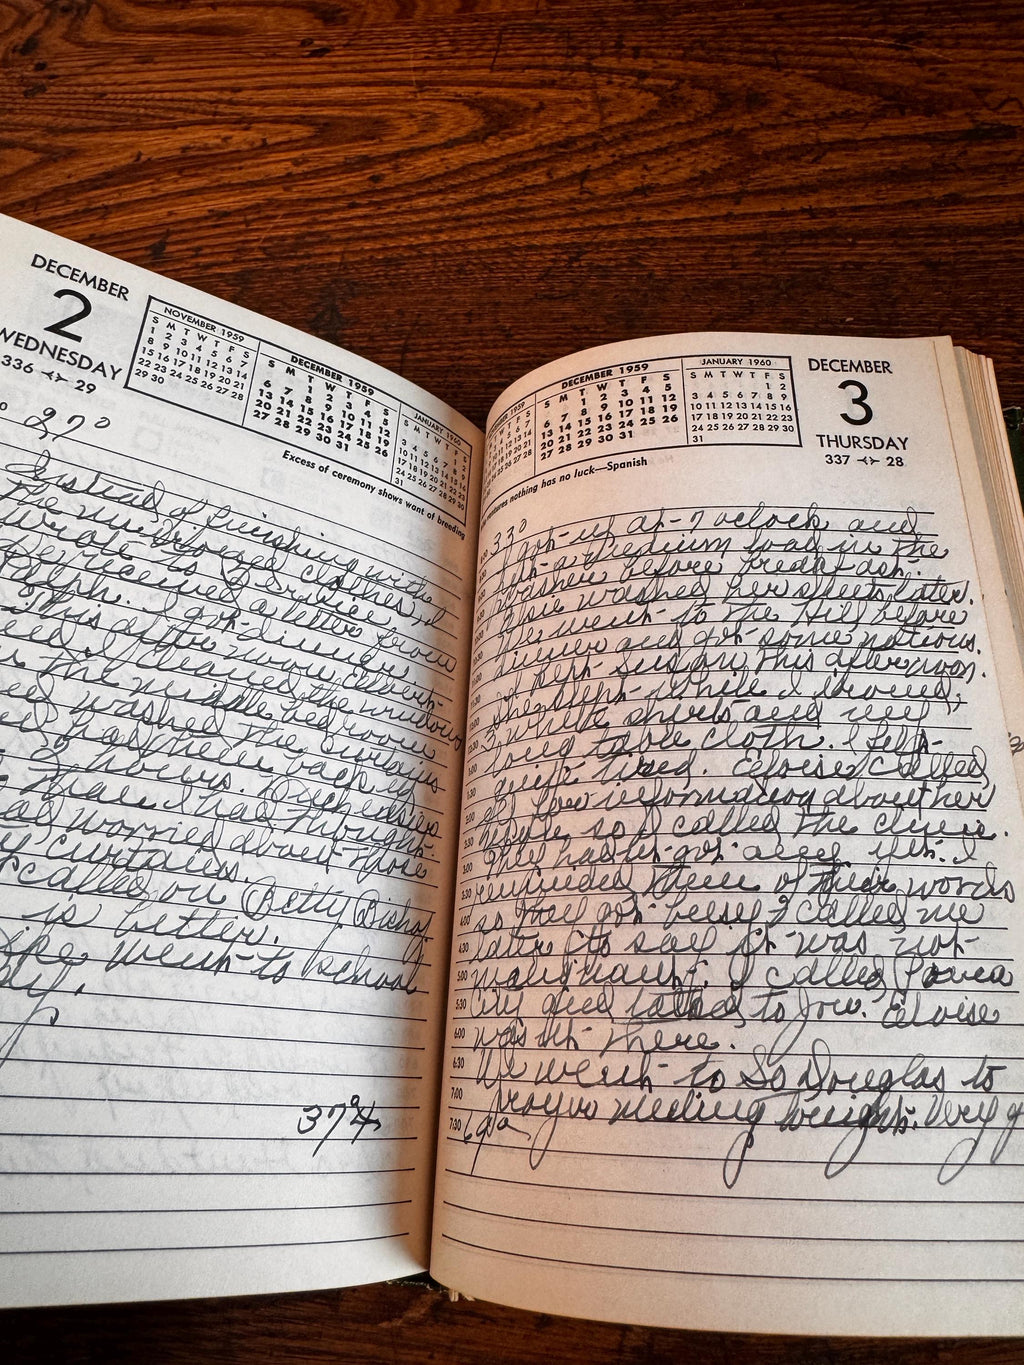 DECEMBER
2
WEDNESDAY
336 29
NOVEMBER 1959
S M T W T F S
1 2 3 4 5 6 7
8 9 10 11 12 13 14
15 16 17 18 19 20 21
22 23 24 25 26 27 28
29 30
DECEMBER 1959
S M T W T F S
1 2 3 4 5
6 7 8 9 10 11 12
13 14 15 16 17 18 19
20 21 22 23 24 25 26
27 28 29 30 31
JANUARY 1960
S M T W T F S
1 2
3 4 5 6 7 8 9
10 11 12 13 14 15 16
17 18 19 20 21 22 23
24 25 26 27 28 29 30
31
Excess of ceremony shows want of breeding
27°
Instead of finishing with
the clothes I
wrote to
We received a letter from
Ralph. I got dinner.
This afternoon
I cleaned the windows
in the middle bedroom
washed the curtains
and had them back up
2 hours.
than I had thought.
had worried about those
curtains.
called on Betty Bishop
is better.
went to school
37°
DECEMBER 1959
S M T W T F S
1 2 3 4 5
6 7 8 9 10 11 12
13 14 15 16 17 18 19
20 21 22 23 24 25 26
27 28 29 30 31
JANUARY 1960
S M T W T F S
1 2
3 4 5 6 7 8 9
10 11 12 13 14 15 16
17 18 19 20 21 22 23
24 25 26 27 28 29 30
31
DECEMBER
3
THURSDAY
337 28
ventures nothing has no luck—Spanish
33°
I got up at 7 oclock and
put a medium load in the
washer before breakfast.
washed her sheets later.
We went to the Hill before
dinner and got some notions.
I kept Susan this afternoon.
She slept while I ironed
3 white shirts and my
long table cloth. I felt
quite tired. Eloise called
for information about her
so I called the clinic.
They hadn't got any yet. I
reminded them of their words
so they got busy & called me
later to say it was not
malignant. I called Iowa
City and talked to Joe. Eloise
wasn't there.
We went to So Douglas to
prayer meeting tonight. Very
1:30
2:00
2:30
3:00
3:30
4:00
4:30
5:00
5:30
6:00
6:30
7:00
7:30